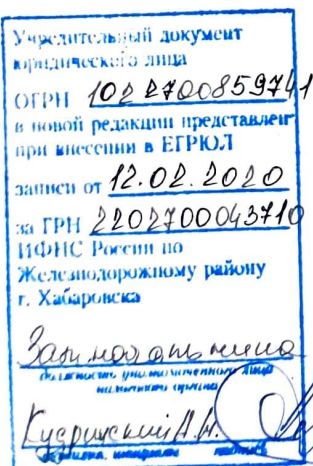 Учредительный документ
юридического лица
ОГРН 1022700859741
в новой редакции представлен
при внесении в ЕГРЮЛ
записи от 12.02.2020
за ГРН 2202700043710
ИФНС России по
Железнодорожному району
г. Хабаровска
должность уполномоченного лица
налогового органа
А.Н.
фамилия, инициалы подпись